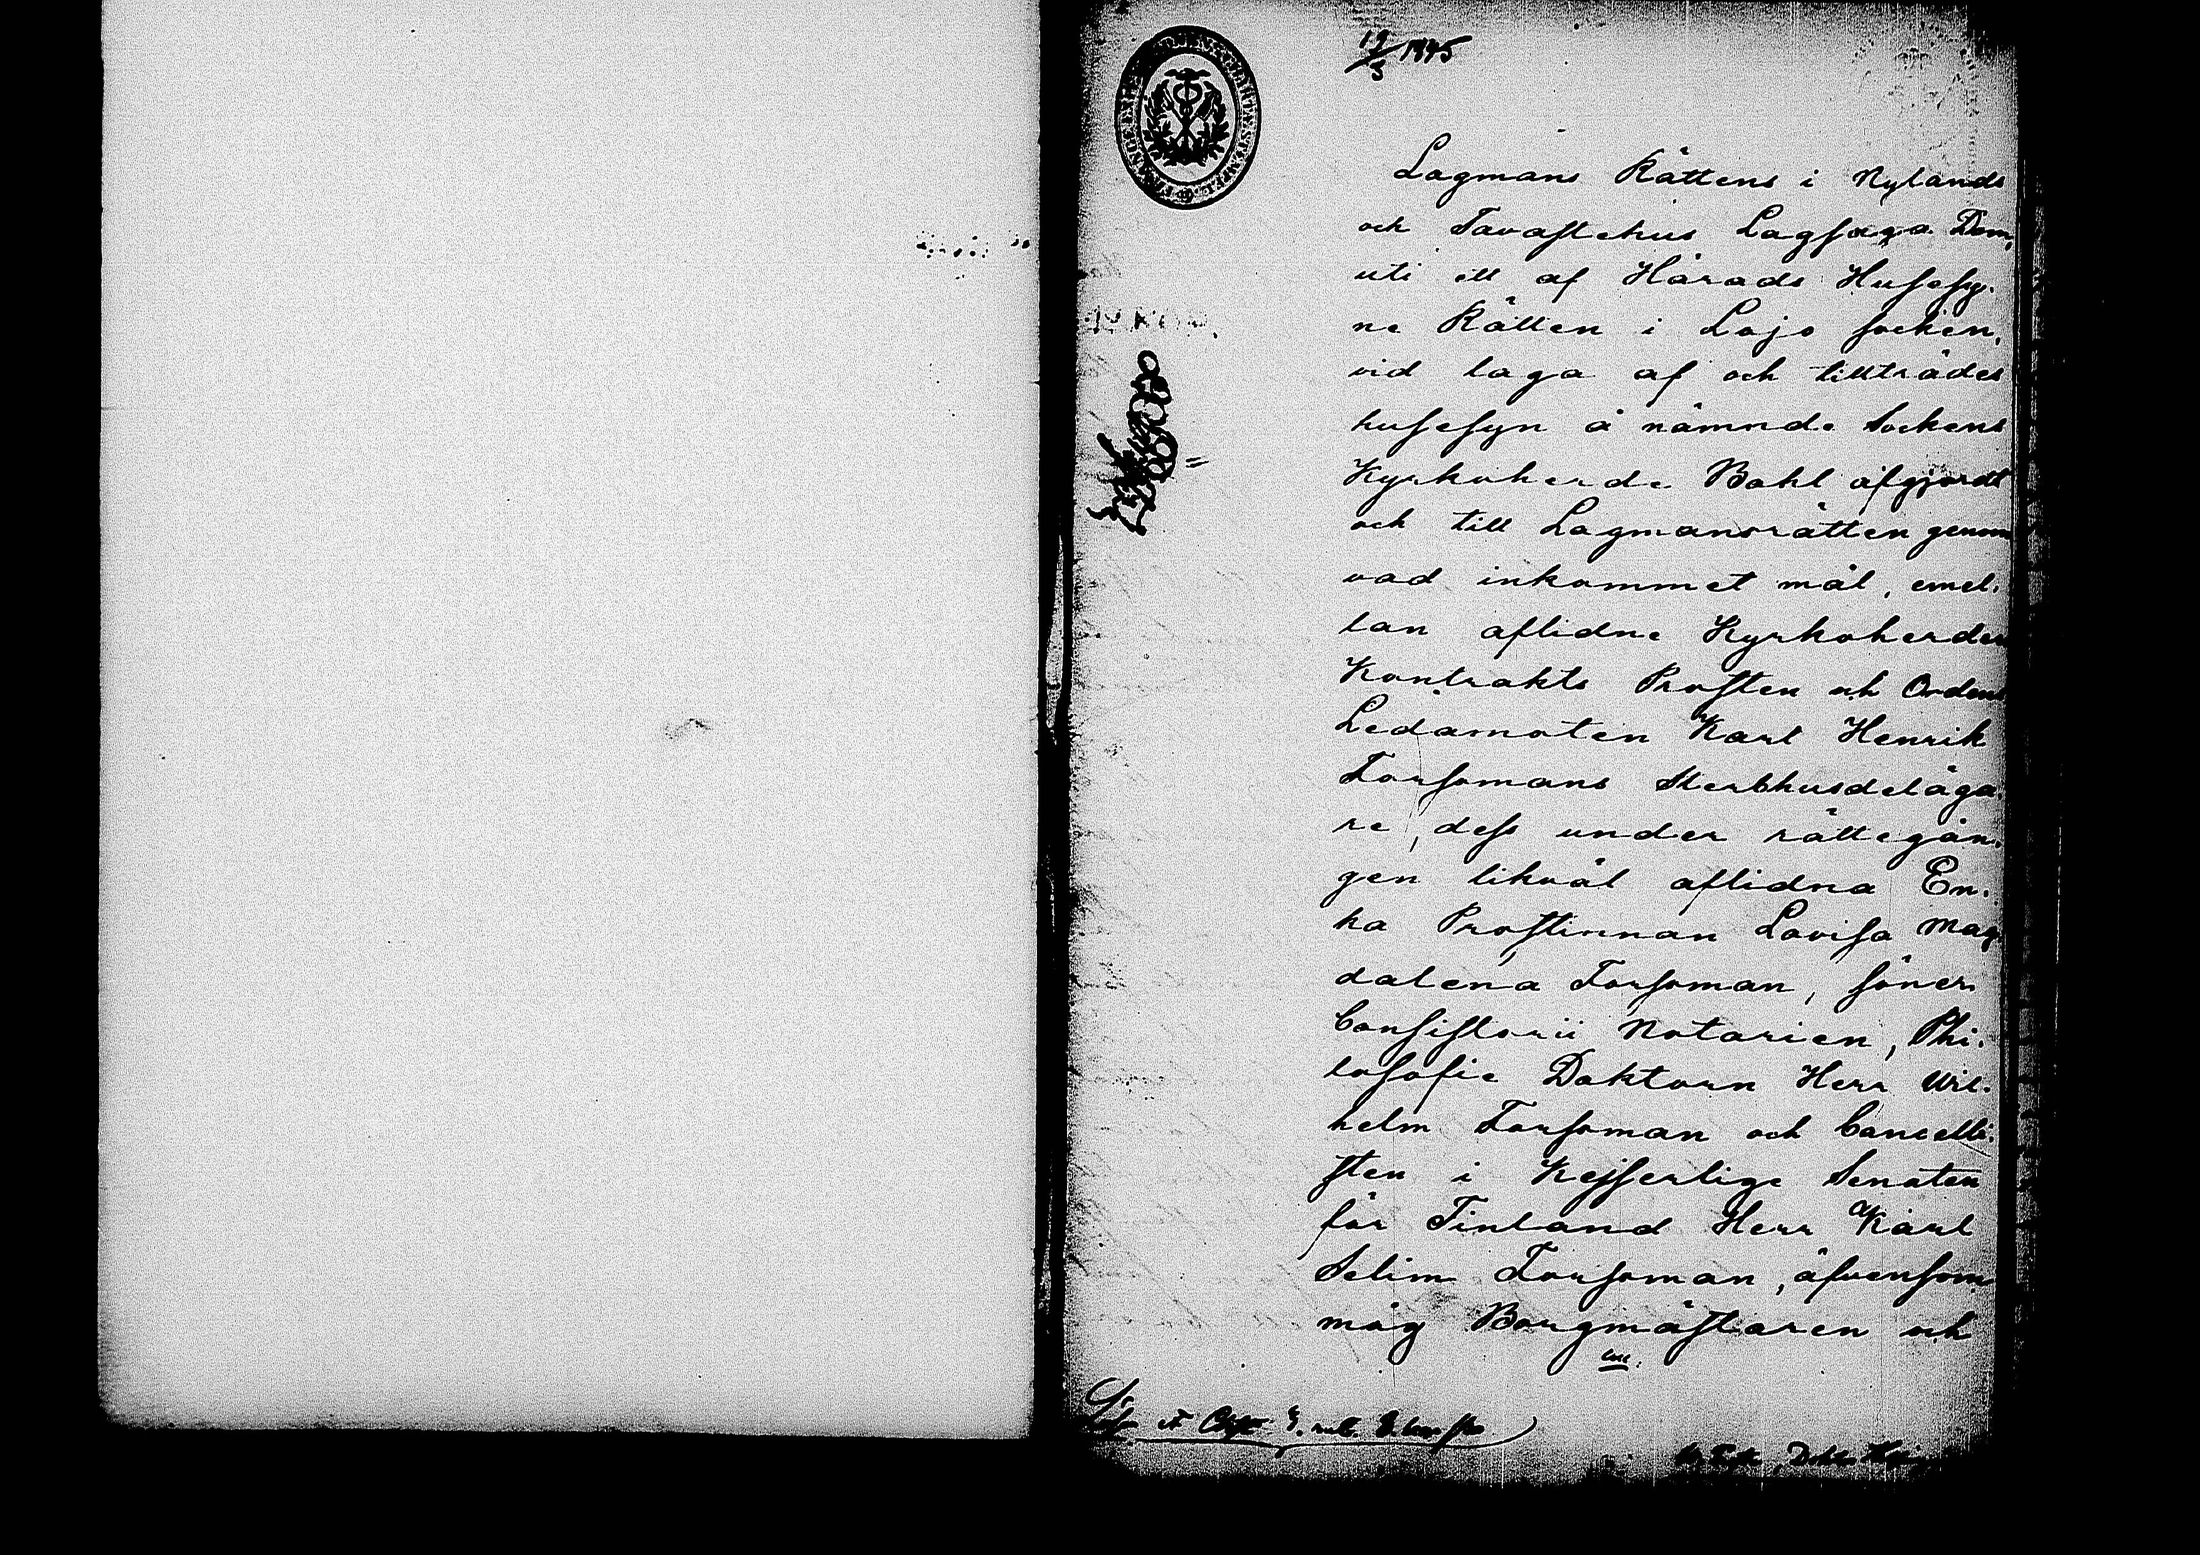 19/3 1845
Lagmans Rättens i Nylands
och Tavastehus Lagsaga Dom,
uti ett af Härads Husesy-
ne Rätten i Lojo socken,
vid laga af och tillträdes
husesyn å nämnde Sockens
Kyrkoherde Bohl afgjordt
och till Lagmansrätten genom
vad inkommet mål, emel-
lan aflidne Kyrkoherden
Kontrakts Prosten och Ordens
Ledamoten Karl Henrik
Forsomans Sterbhusdeläga-
re, dess under rättegån-
gen likväl aflidna En-
ka Prostinnan Lovisa Mag-
dalena Forsoman, söner
Consistorii Notarien, Phi-
losofie Doktorn Herr Wil-
helm Forsoman och Cancelli-
sten i Kejserlige Senaten
för Finland Herr Karl
Selim Forsoman, äfvensom
måg Borgmästaren och